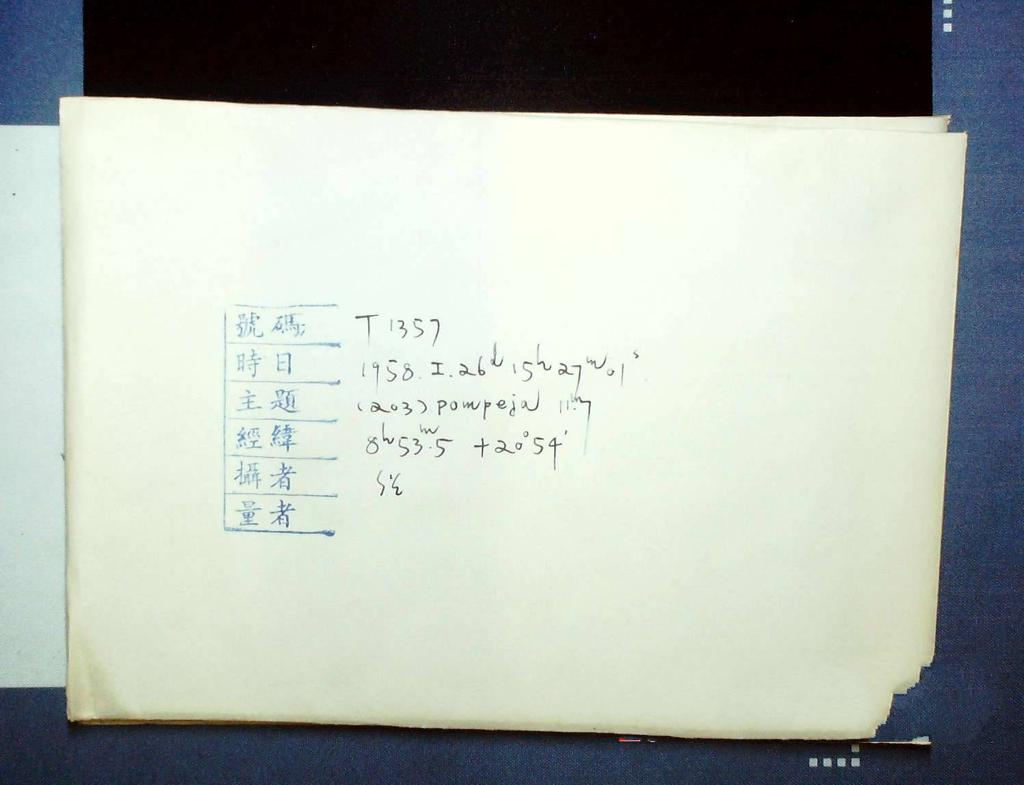 號碼 T 1357
時日 1958. I. 26ᵈ 15ʰ 27ᵐ 01ˢ
主題 (203) pompeja 11ᵐ.7
經緯 8ʰ53ᵐ.5 +20°54'
攝者
量者